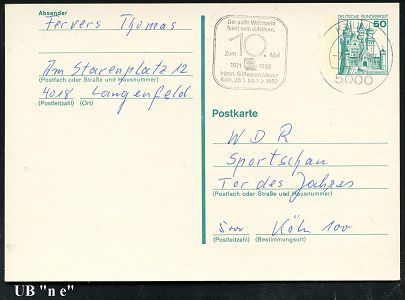 Absender
Fervers Thomas
Am Starenplatz 12
(Postfach oder Straße und Hausnummer)
4018 Langenfeld
(Postleitzahl) (Ort)
Die süße Weltmesse
feiert ein Jubiläum.
Zum 10. Mal
1971 1980
Intern. Süßwaren-Messe
Köln, 28.1. bis 1.2.1980
DEUTSCHE BUNDESPOST
50
5000
Postkarte
WDR
Sportschau
Tor des Jahres
(Postfach oder Straße und Hausnummer)
5000 Köln 100
(Postleitzahl) (Bestimmungsort)
UB "n e"